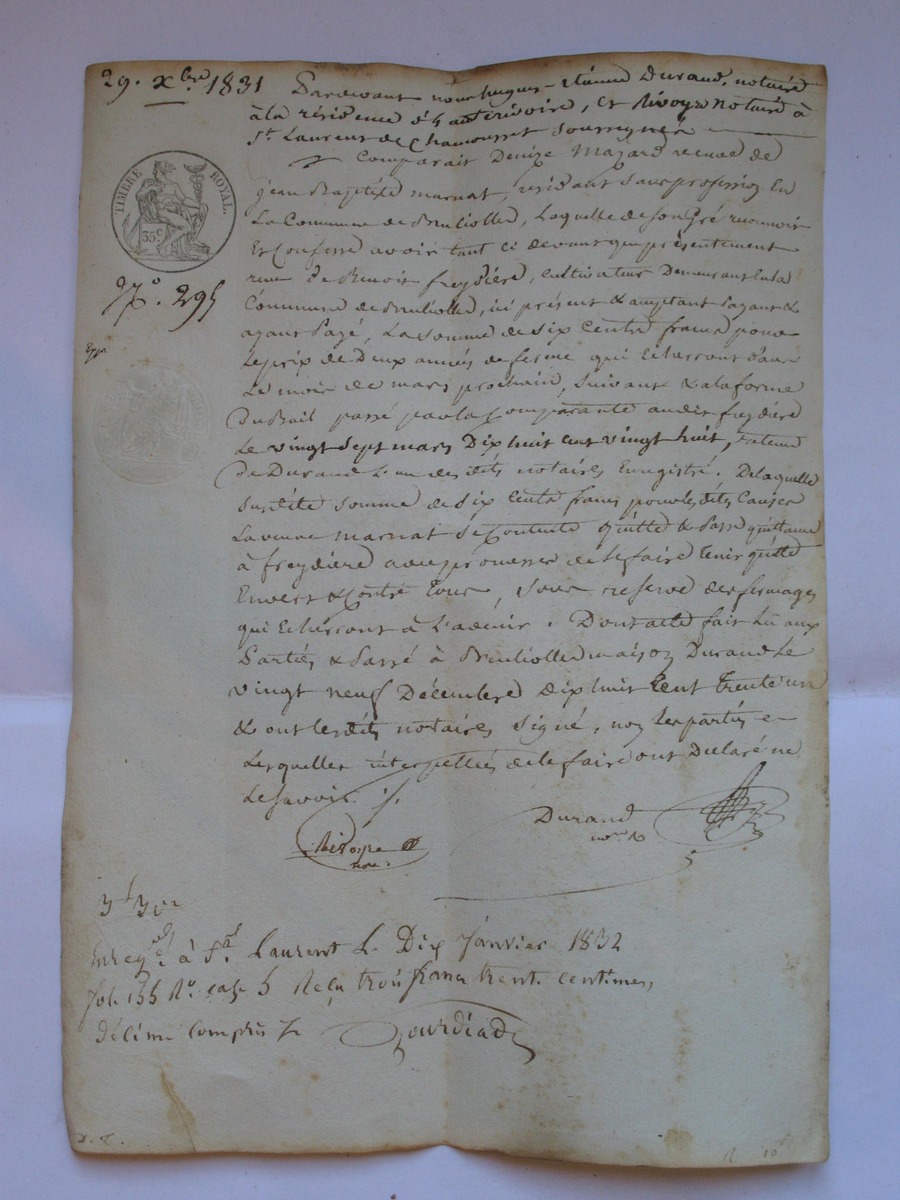 29. Xbre 1831
Pardevant nous hugues-etienne Durand, notaire
à la résidence d'hauterivoire, et Rivoyre notaire à
St. Laurent de Chamousset soussignés
Comparait Denize Mazard veuve de
jean Baptiste marnat, residant sans profession En
La Commune de Brulliolles, Laquelle de son Gré reconnoit
Et Confesse avoir tant ci devant que présentement
reçu de Benoit freydière, cultivateur Demeurant en la
Commune de Brulliolles, ici présent & acceptant payant &
ayant Payé, La somme de six Cents francs pour
Le prix de Deux années de ferme qui Echerront
Le mois de mars prochain, suivant & a la forme
Du Bail passé par la Comparante audit freydière
Le vingt Sept mars Dix huit cent vingt huit,
De Durand L'un desdits notaires Enregistré. De laquelle
susdite somme de Six Cents francs pour les dites Causes
La veuve marnat se Contente Quitte & Passe quittance
à freydière avec promesse de le faire tenir quitte
Envers & Contre Tous, sous reserve des fermages
qui Echerront à L'avenir. Dont acte fait Lu aux
Parties & Passé à Brulliolles maison Durand Le
vingt neuf Décembre dix huit Cent trente un
& ont lesdits notaires signé, non les parties
Lesquelles interpellées de le faire ont Declaré ne
Le savoir ./.
TIMBRE ROYAL
35 C
No. 295
Exp.
Rivoyre
nore.
Durand
nore
Enregé. à St. Laurent Le Dix Janvier 1832
fol. 155 Ro. case 5 Reçu trois francs trente centimes,
décime compris